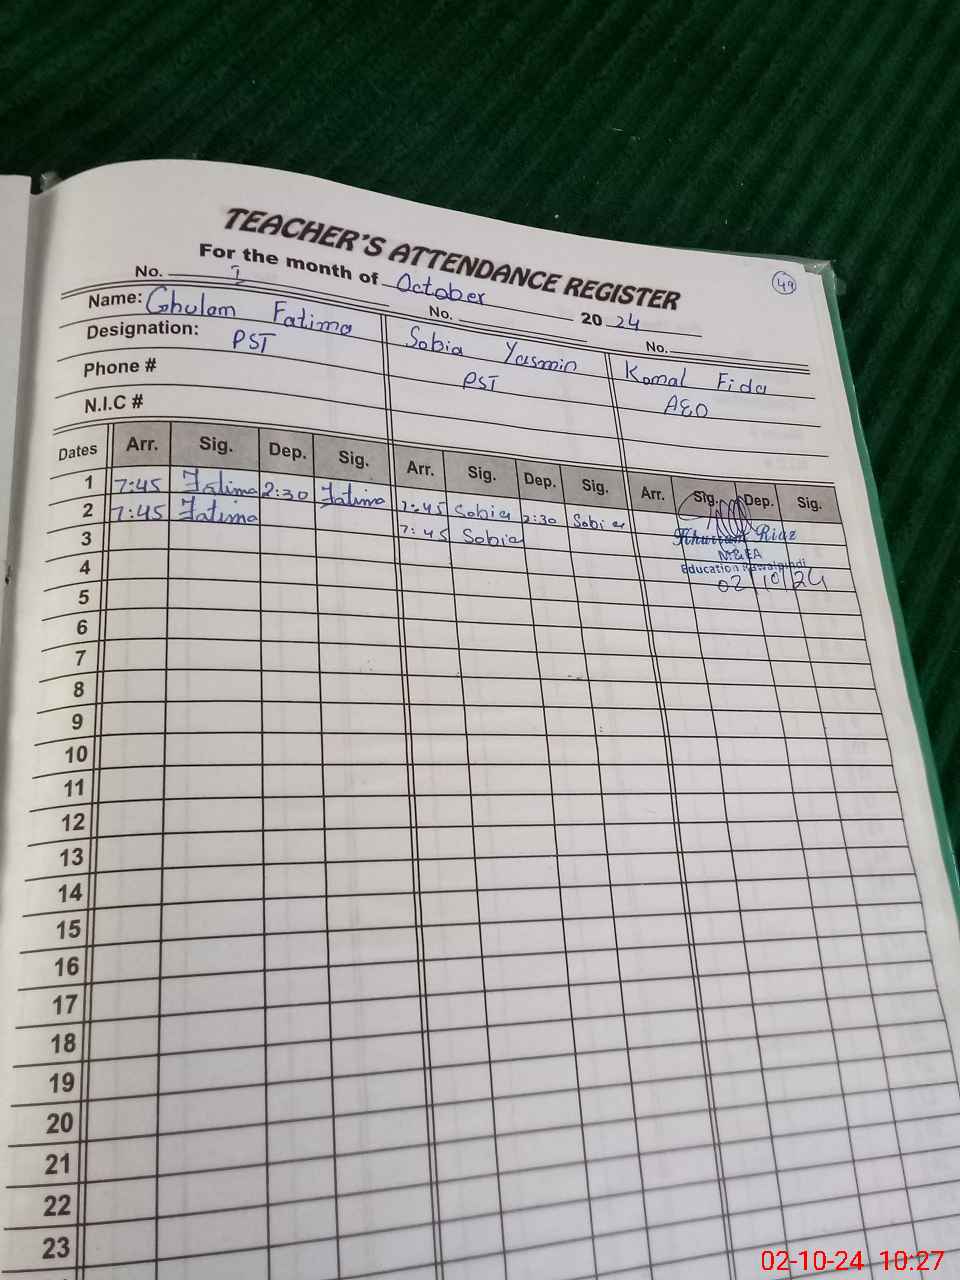 TEACHER'S ATTENDANCE REGISTER
49
For the month of October 2024
No. No. No.
Name: Ghulam Fatima Sobia Yasmin Komal Fida
Designation: PST PST AEO
Phone #
N.I.C #
Dates Arr. Sig. Dep. Sig. Arr. Sig. Dep. Sig. Arr. Sig. Dep. Sig.
1 7:45 Fatima 2:30 Fatima 7:45 Sobia 2:30 Sobia
2 7:45 Fatima 7:45 Sobia
Khurram Riaz
M&EA
Education Rawalpindi
02/10/24
3
4
5
6
7
8
9
10
11
12
13
14
15
16
17
18
19
20
21
22
23
02-10-24 10:27